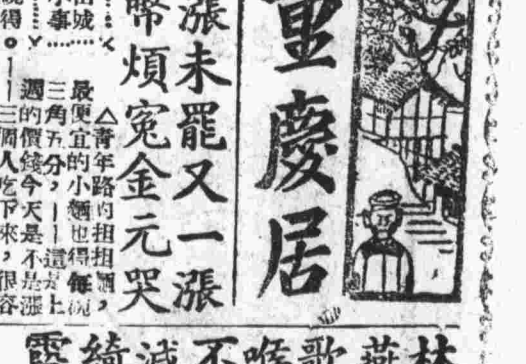 重慶居
漲未罷又一漲
幣煩冤金元哭
△青年路的担担麵，
最便宜的小麵也得每碗
三角五分，——這是上
週的價錢今天是不是漲
——三個人吃下來，很容
城
小事
說得。
燕歌喉不減綺霞